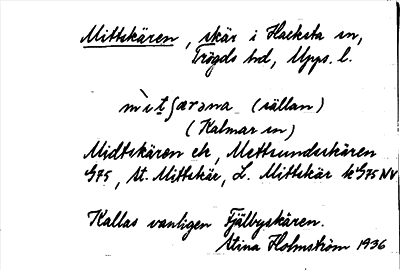 Mittskären, skär i Hacksta sn,
Trögds hd, Upps. l.
mìtʃærəna (sällan)
(Kalmar sn)
Midtskären ek, Mettsundsskären
G75, St. Mittskär, L. Mittskär k G75 NV
Kallas vanligen Fjälbyskären.
Stina Holmström 1936